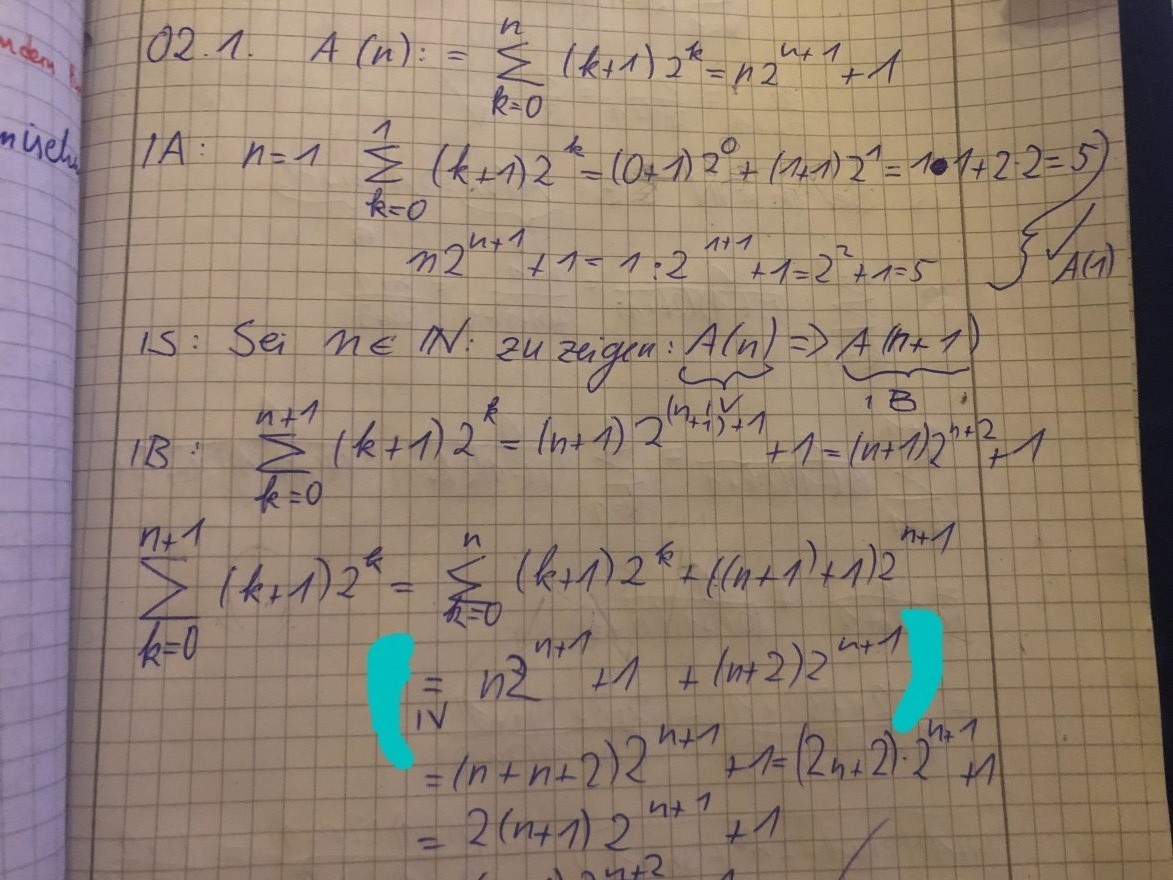 ndern
misch
02.1. A(n): = \sum_{k=0}^{n} (k+1) 2^k = n2^{n+1} + 1
IA: n=1 \sum_{k=0}^{1} (k+1) 2^k = (0+1) 2^0 + (1+1) 2^1 = 1•1+2·2=5
n2^{n+1} + 1 = 1·2^{1+1} + 1 = 2^2 + 1 = 5 } ✓ A(1)
IS: Sei n ∈ ℕ: zu zeigen: A(n) => A(n+1)
IV IB
IB: \sum_{k=0}^{n+1} (k+1) 2^k = (n+1) 2^{(n+1)+1} + 1 = (n+1) 2^{n+2} + 1
\sum_{k=0}^{n+1} (k+1) 2^k = \sum_{k=0}^{n} (k+1) 2^k + ((n+1)+1) 2^{n+1}
( = n2^{n+1} + 1 + (n+2) 2^{n+1} )
IV
= (n+n+2) 2^{n+1} + 1 = (2n+2)·2^{n+1} + 1
= 2(n+1) 2^{n+1} + 1